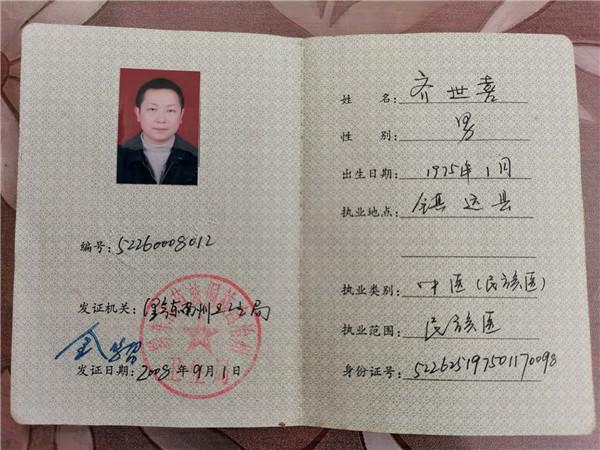 编号:52260008012
发证机关:黔东南州卫生局
发证日期:2008年9月1日
姓 名:齐世喜
性 别:男
出生日期:1975年1月
执业地点:镇远县
执业类别:中医(民族医)
执业范围:民族医
身份证号:522625197501170098